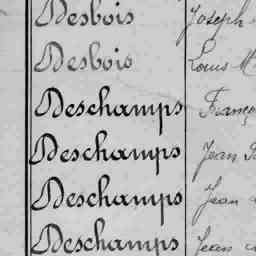 Desbois Joseph
Desbois Louis M
Deschamps Franço
Deschamps Jean
Deschamps Jean
Deschamps Jean